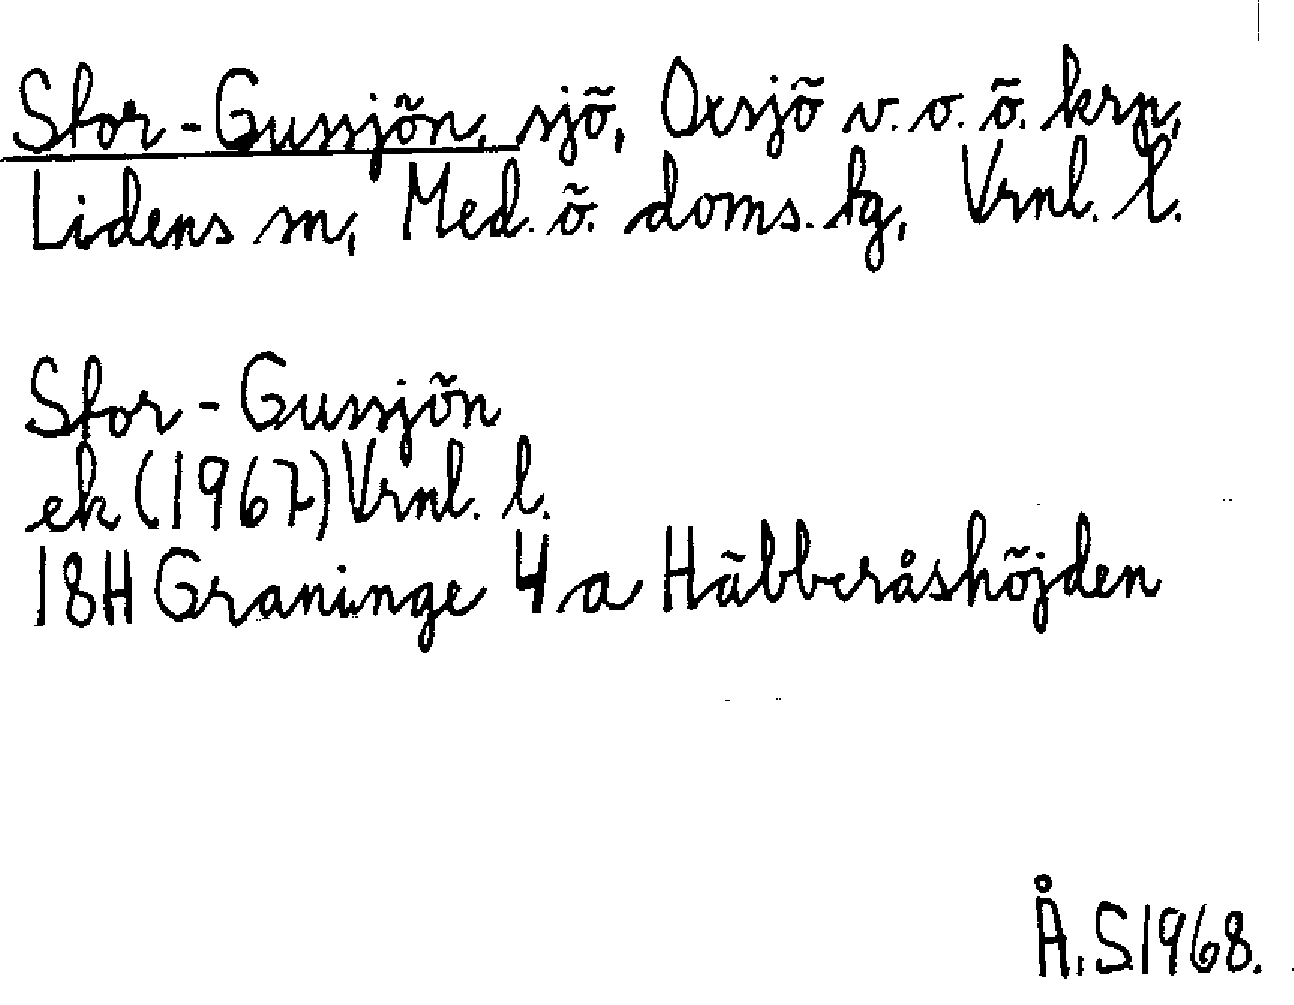 Stor-Gussjön, sjö, Oxsjö v. o. ö. krn,
Lidens sn, Med. ö. doms. tg, Vrnl. l.
Stor-Gussjön
ek (1967) Vrnl. l.
18H Graninge 4a Häbberåshöjden
Å.S 1968.